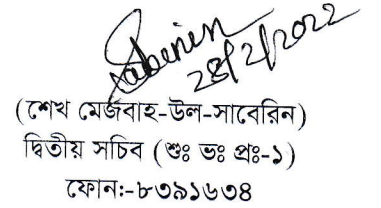 Saberin
28/2/2022
(শেখ মেজবাহ-উল-সাবেরিন)
দ্বিতীয় সচিব (শুঃ ভঃ প্রঃ-১)
ফোন:-৮৩৯১৬৩৪